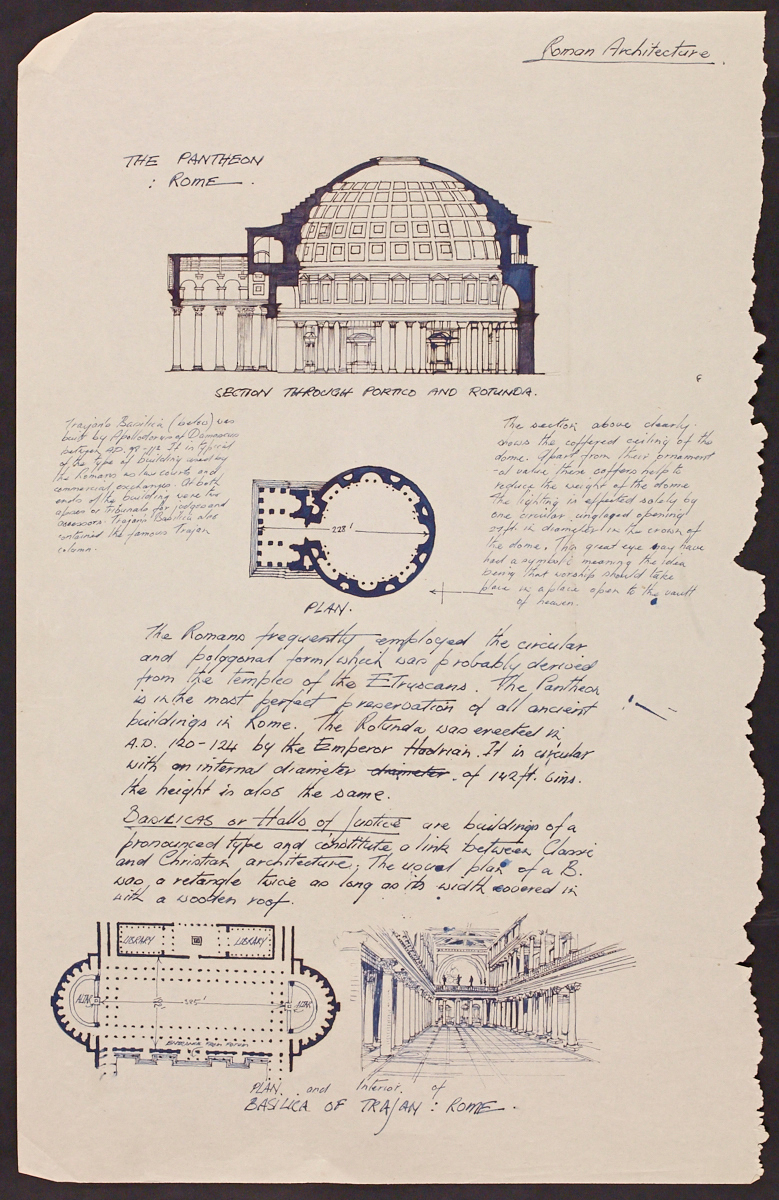 Roman Architecture.
THE PANTHEON
: ROME.
SECTION THROUGH PORTICO AND ROTUNDA.
Trajan's Basilica (below) was
built by Apollodorus of Damascus
between A.D. 98-112. It is typical
of the type of building used by
the Romans as law courts and
commercial exchanges. At both
ends of the building were two
apses or tribunals for judges and
assessors. Trajan's Basilica also
contained the famous Trajan
column.
The section above clearly
shows the coffered ceiling of the
dome. Apart from their ornament
-al value these coffers help to
reduce the weight of the dome
The lighting is effected solely by
one circular, unglazed opening
in diameter in the crown of
the dome. This great eye may have
had a symbolic meaning the idea
being that worship should take
place in a place open to the vault
of heaven.
228'
PLAN.
The Romans frequently employed the circular
and polygonal form which was probably derived
from the temples of the Etruscans. The Pantheon
is in the most perfect preservation of all ancient
buildings in Rome. The Rotunda was erected in
A.D. 120-124 by the Emperor Hadrian. It is circular
with an internal diameter diameter. of 142ft. 6ins.
the height is also the same.
BASILICAS or Halls of Justice are buildings of a
pronounced type and constitute a link between Classic
and Christian architecture. The usual plan of a B.
was a retangle twice as long as its width covered in
with a wooden roof.
LIBRARY
LIBRARY
385'
ENTRANCE FROM FORUM
PLAN. and Interior. of
BASILICA OF TRAJAN : ROME.